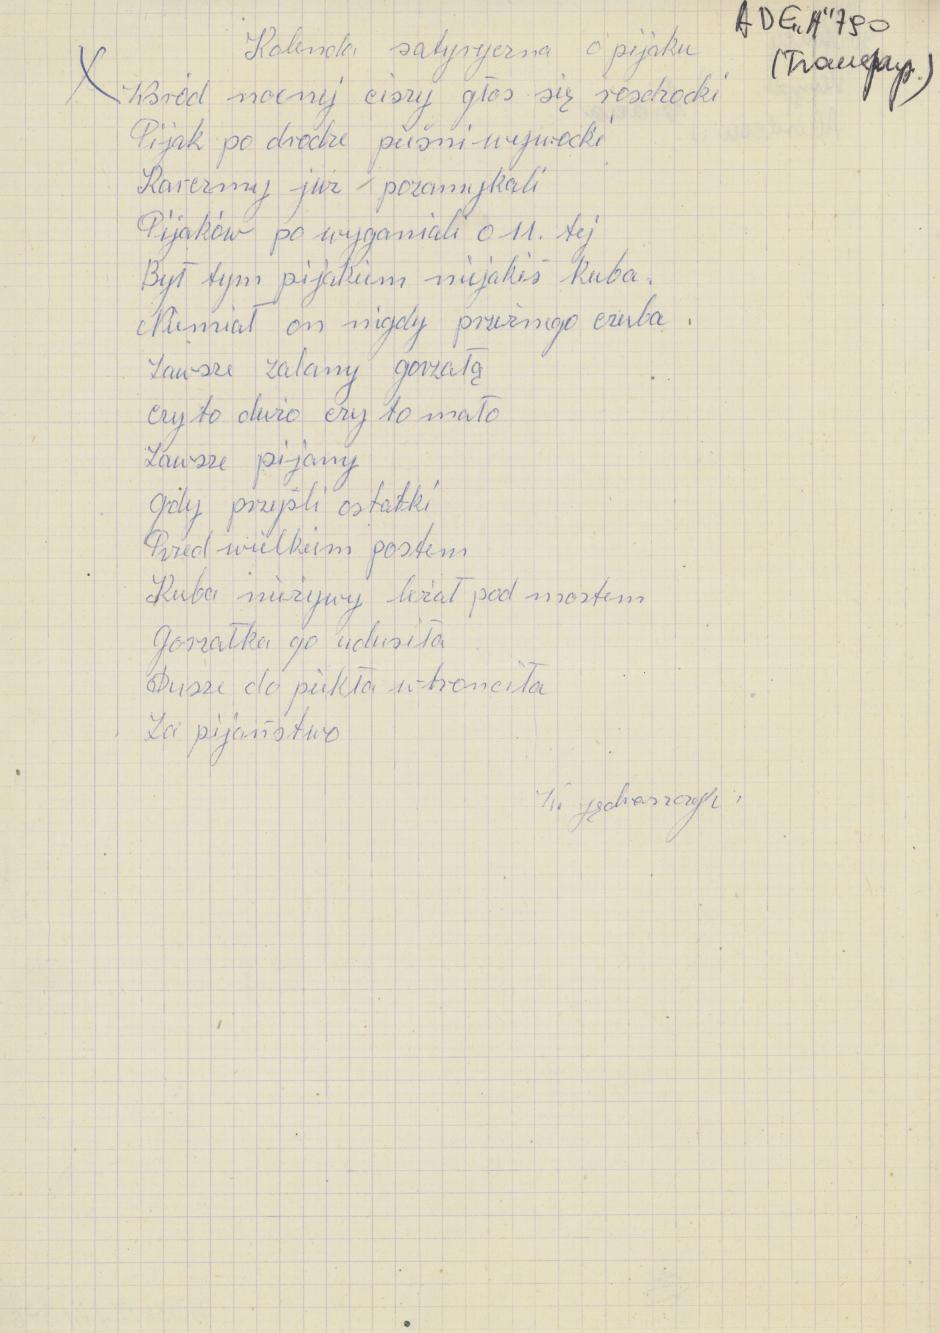 ADG "A" 790
Kolenda satyryczna o pijaku
Wśród nocnej ciszy głos się rozchodzi
Pijak po drodze pieśni wywodzi
Karczmy już pozamykali
Pijaków po wyganiali o 11. tej
Był tym pijakiem niejakiś Kuba.
Niemiał on nigdy prużnego czuba.
Zawsze zalany gorzałą
czy to dużo czy to mało
Zawsze pijany
gdy przyśli ostatki
Przed wielkiem postem
Kuba nieżywy leżał pod mostem
gorzałka go udusiła
Dusze do piekła wtronciła
Za pijaństwo